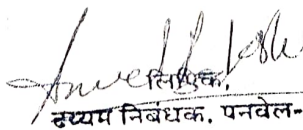 लिपिक,
दुय्यम निबंधक, पनवेल-